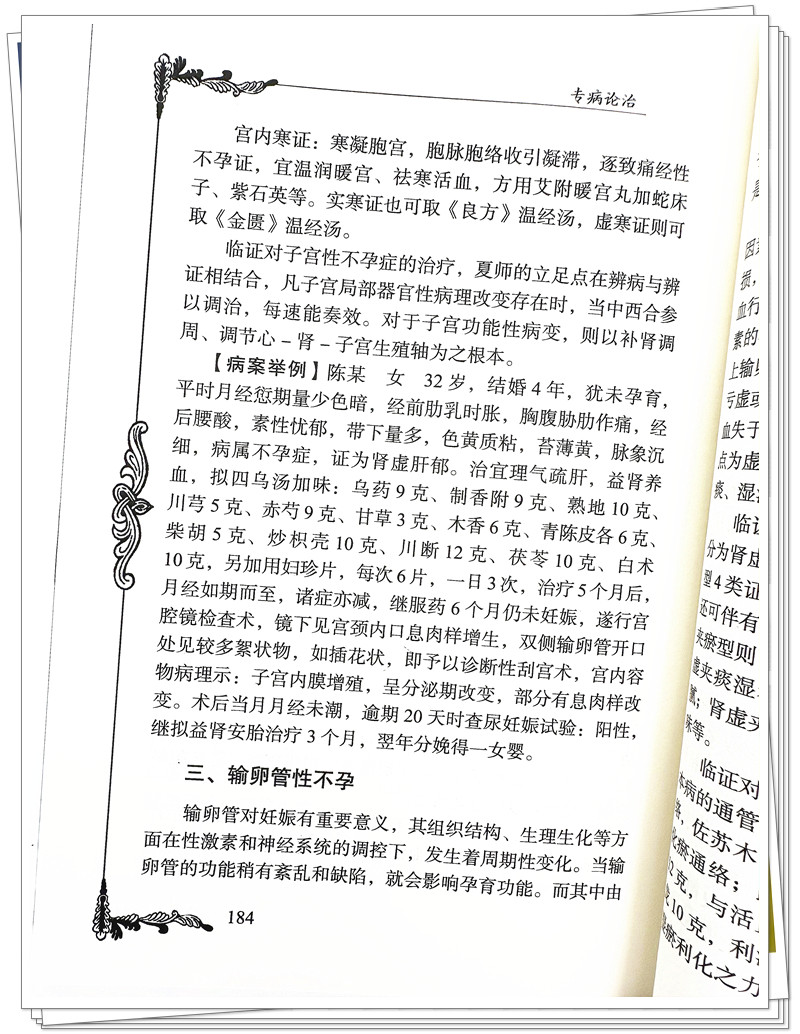 专病论治
宫内寒证：寒凝胞宫，胞脉胞络收引凝滞，逐致痛经性
不孕证，宜温润暖宫、祛寒活血，方用艾附暖宫丸加蛇床
子、紫石英等。实寒证也可取《良方》温经汤，虚寒证则可
取《金匮》温经汤。
临证对子宫性不孕症的治疗，夏师的立足点在辨病与辨
证相结合，凡子宫局部器官性病理改变存在时，当中西合参
以调治，每速能奏效。对于子宫功能性病变，则以补肾调
周、调节心－肾－子宫生殖轴为之根本。
【病案举例】陈某 女 32岁，结婚4年，犹未孕育，
平时月经愆期量少色暗，经前肋乳时胀，胸腹胁肋作痛，经
后腰酸，素性忧郁，带下量多，色黄质粘，苔薄黄，脉象沉
细，病属不孕症，证为肾虚肝郁。治宜理气疏肝，益肾养
血，拟四乌汤加味：乌药9克、制香附9克、熟地10克、
川芎5克、赤芍9克、甘草3克、木香6克、青陈皮各6克、
柴胡5克、炒枳壳10克、川断12克、茯苓10克、白术
10克，另加用妇珍片，每次6片，一日3次，治疗5个月后，
月经如期而至，诸症亦减，继服药6个月仍未妊娠，遂行宫
腔镜检查术，镜下见宫颈内口息肉样增生，双侧输卵管开口
处见较多絮状物，如插花状，即予以诊断性刮宫术，宫内容
物病理示：子宫内膜增殖，呈分泌期改变，部分有息肉样改
变。术后当月月经未潮，逾期20天时查尿妊娠试验：阳性，
继拟益肾安胎治疗3个月，翌年分娩得一女婴。
三、输卵管性不孕
输卵管对妊娠有重要意义，其组织结构、生理生化等方
面在性激素和神经系统的调控下，发生着周期性变化。当输
卵管的功能稍有紊乱和缺陷，就会影响孕育功能。而其中由
184
是
因
损，
血行
素的
上输
亏虚或
血失于
点为虚
痰、湿
临证
分为肾虚
型4类证
还可伴有
夹瘀型则
虚夹痰湿
肾虚夹
味等。
临证对
本病的通管
佐苏木
瘀通络；
2克，与活
10克，利
瘀利化之力